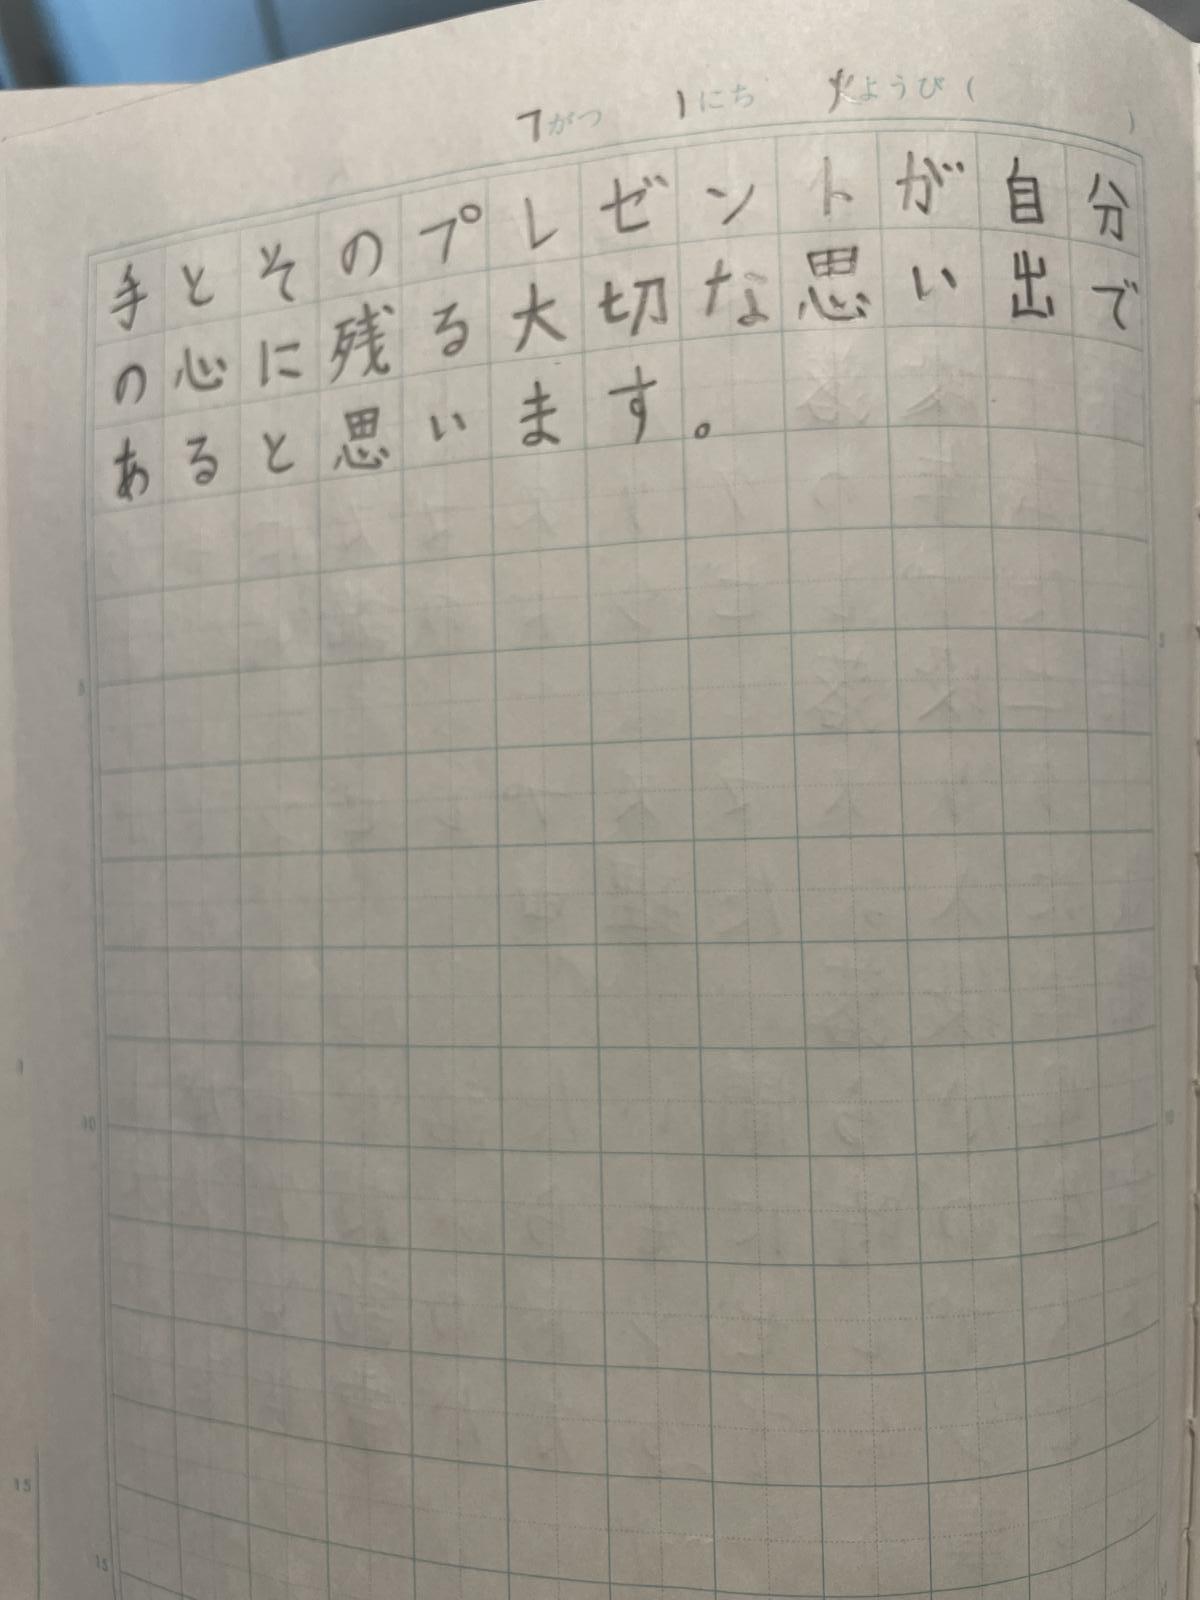 7がつ 1にち 火ようび( )
手とそのプレゼントが自分
の心に残る大切な思い出で
あると思います。
5
10
15
5
10
15